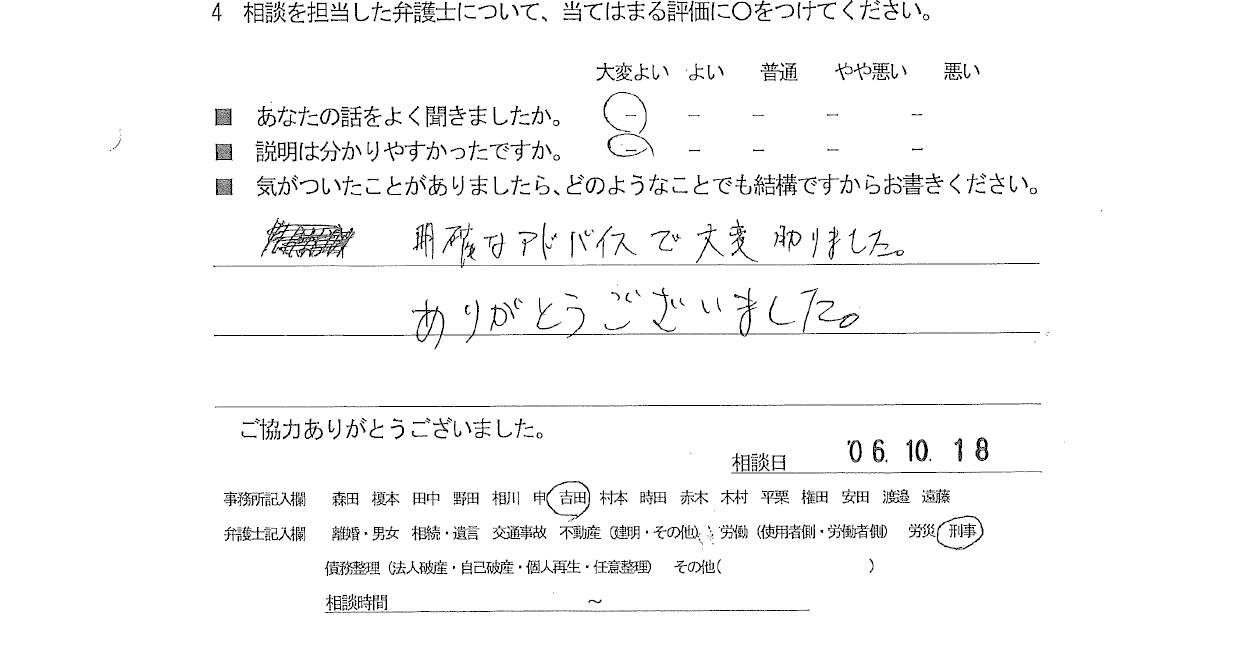 4 相談を担当した弁護士について、当てはまる評価に〇をつけてください。
大変よい よい 普通 やや悪い 悪い
■ あなたの話をよく聞きましたか。 - - - - -
■ 説明は分かりやすかったですか。 - - - - -
■ 気がついたことがありましたら、どのようなことでも結構ですからお書きください。
明確なアドバイスで大変助りました。
ありがとうございました。
ご協力ありがとうございました。
相談日 '06.10.18
事務所記入欄 森田 榎本 田中 野田 相川 申 吉田 村本 時田 赤木 木村 平栗 権田 安田 渡邉 遠藤
弁護士記入欄 離婚・男女 相続・遺言 交通事故 不動産（建明・その他） 労働（使用者側・労働者側） 労災 刑事
債務整理（法人破産・自己破産・個人再生・任意整理） その他( )
相談時間 ～